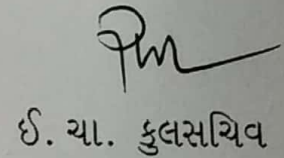 ઈ. ચા. કુલસચિવ